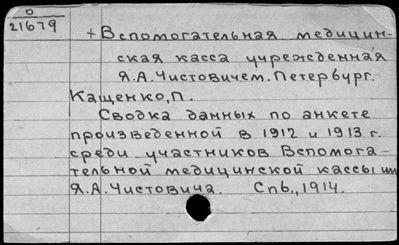 0
21679
+ Вспомогательная медицин-
ская касса учрежденная
Я.А.Чистовичем. Петербург.
Кащенко, П.
Сводка данных по анкете
произведенной в 1912 и 1913 г.
среди участников Вспомога-
тельной медицинской кассы им
Я.А.Чистовича. Спб., 1914.